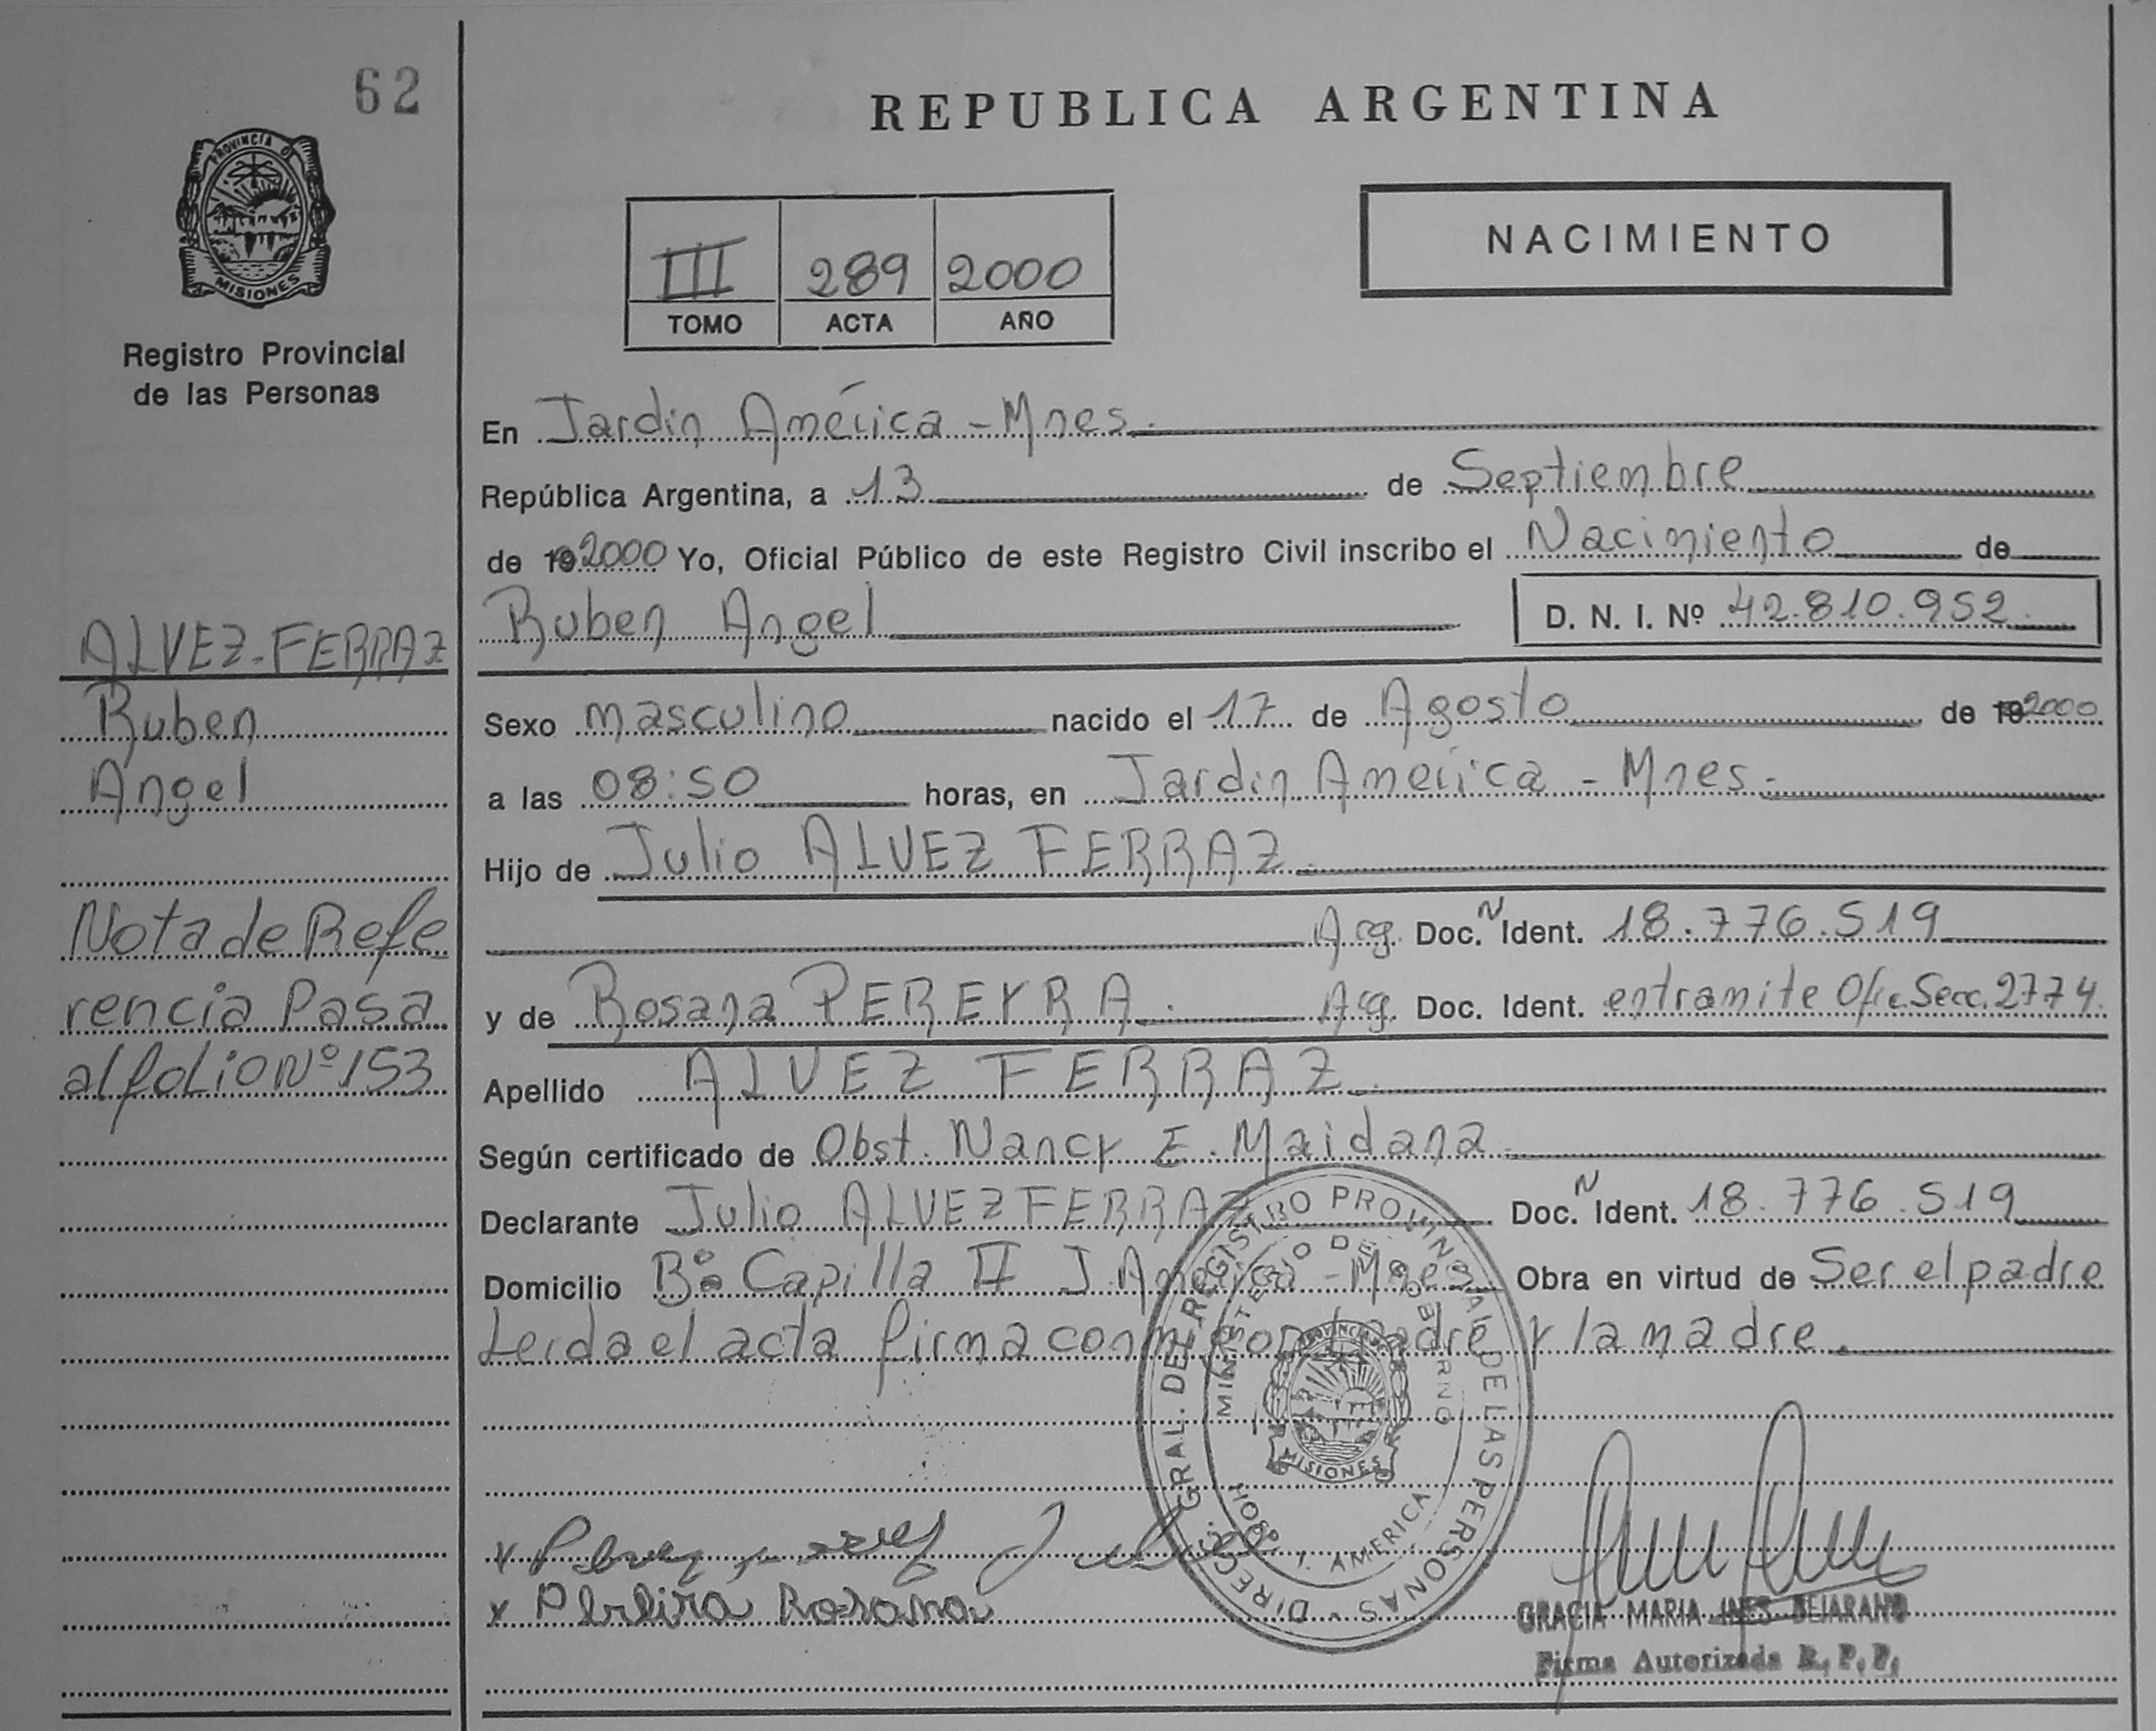 62
PROVINCIA DE
MISIONES
Registro Provincial
de las Personas
ALVEZ-FERRAZ
Ruben
Angel
Nota de Refe
rencia Pasa
al folio Nº 153
REPUBLICA ARGENTINA
III 289 2000
TOMO ACTA AÑO
NACIMIENTO
En Jardin América - Mnes.
República Argentina, a 13 de Septiembre
de 19 2000 Yo, Oficial Público de este Registro Civil inscribo el Nacimiento de
Ruben Angel D. N. I. Nº 42.810.952
Sexo masculino nacido el 17 de Agosto de 19 2000
a las 08:50 horas, en Jardin América - Mnes.
Hijo de Julio ALVEZ FERRAZ
Arg. Doc. N Ident. 18.776.519
y de Rosana PEREYRA. Arg. Doc. Ident. entramite Ofic. Secc. 2774.
Apellido ALVEZ FERRAZ
Según certificado de Obst. Nancy E. Maidana
Declarante Julio ALVEZ FERRAZ Doc. N Ident. 18.776.519
Domicilio Bº Capilla II J. América - Mnes Obra en virtud de Ser el padre
Leida el acta firma conmigo el padre y la madre.
DIREC. GRAL. DEL REGISTRO PROVINCIAL DE LAS PERSONAS
MINISTERIO DE GOBIERNO
PROVINCIA
MISIONES
HOSP. J. AMERICA
x
x Pereira Rosana
GRACIA MARIA INES BEJARANO
Firma Autorizada R. P. P.